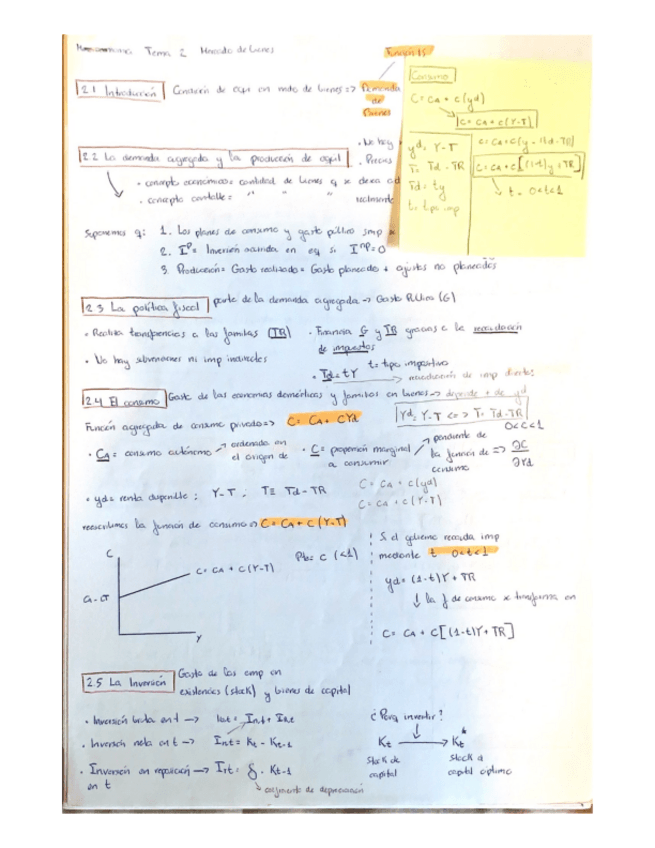 Tema 2 Mercado de bienes
Función IS
2.1 Introducción
Condición de equi en mdo de bienes => Demanda
de
Bienes
Consumo
C = CA + c(yd)
C = CA + c(Y-T)
yd = Y-T
T = Td - TR
Td = ty
t = tipo imp
C = CA + c[(1-t)y + TR]
t = 0<t<1
No hay
Precios
2.2 La demanda agregada y la producción de equil
concepto económico = cantidad de bienes q se desea
concepto contable = " " " realmente
Suponemos q:
1. Los planes de consumo y gasto público smp se
2. I^P = Inversión en eq si I^np = 0
3. Producción = Gasto realizado = Gasto planeado + ajustes no planeados
2.3 La política fiscal
parte de la demanda agregada -> Gasto Público (G)
• Realiza transferencias a las familias (TR)
• Financia G y TR gracias a la recaudación
de impuestos
• No hay subvenciones ni imp indirectos
• Td = tY
t = tipo impositivo
recaudación de imp directos
2.4 El consumo
Gasto de las economías domésticas y familias en bienes -> depende + de yd
Yd = Y-T <=> T = Td - TR
Función agregada de consumo privado => C = CA + CYd
0<c<1
• CA = consumo autónomo -> ordenada en
el origen de
• C = propensión marginal
a consumir
pendiente de
la función de
consumo
=> ∂C
∂Yd
• yd = renta disponible : Y-T , T = Td - TR
C = CA + c(yd)
C = CA + c(Y-T)
reescribimos la función de consumo => C = CA + C(Y-T)
C
C = CA + C(Y-T)
CA - CT
Y
Pte = C (<1)
Si el gobierno recauda imp
mediante t 0<t<1
yd = (1-t)Y + TR
↓ la f de consumo se transforma en
C = CA + C[(1-t)Y + TR]
2.5 La Inversión
Gasto de las emp en
existencias (stock) y bienes de capital
• Inversión bruta en t -> Ibt = Int + Irt
• Inversión neta en t -> Int = Kt - Kt-1
• Inversión en reposición -> Irt = δ · Kt-1
en t
coeficiente de depreciación
¿Para invertir?
Kt -> Kt*
stock de
capital
stock d
capital óptimo